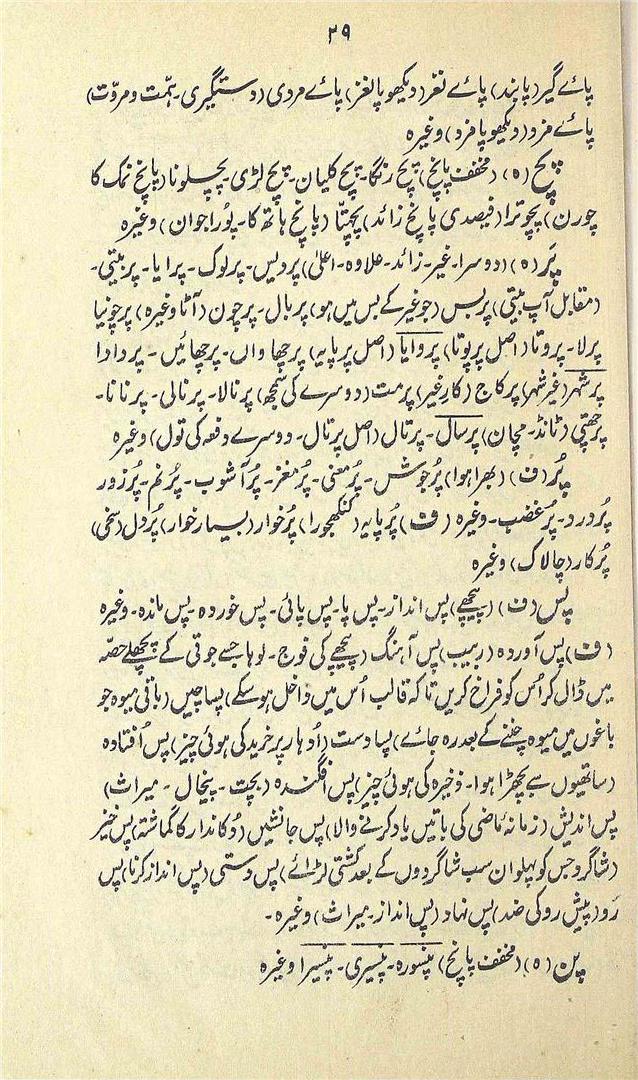 ۲۹
پائے گیر (پابند) پائے نغز (دیکھو پانغز) پائے مردی (دستگیری۔ ہمّت و مروّت)
پائے مزد (دیکھو پامزد) وغیرہ
پچ (ہ) (مخفف پانچ) پچ رنگا۔ پچ کلیان۔ پچ لڑی۔ پچلونا (پانچ نمک کا
چورن) پچوترا (فیصدی پانچ زائد) پچہتّا (پانچ ہاتھ کا۔ پُورا جوان) وغیرہ
پَر (ہ) (دوسرا۔ غیر۔ زائد۔ علاوہ۔ اعلیٰ) پردیس۔ پرلوک۔ پرایا۔ پربیتی۔
(مقابل آپ بیتی) پربس (جو غیر کے بس میں ہو) پربال۔ پرچون (آٹا وغیرہ) پرچونیا
پرلا۔ پروتا (اصل پرپوتا) پروایا (اصل پرپایہ) پرچھاواں۔ پرچھائیں۔ پردادا
پرشہر (غیر شہر) پرکاج (کارِ غیر) پرمت (دوسرے کی سمجھ) پرنالا۔ پرنالی۔ پرنانا۔
پرچھتی (ٹانڈ۔ مچان) پرسال۔ پرتال (اصل پرتال۔ دوسرے دفعہ کی تول) وغیرہ
پُر (ف) (بھرا ہوا) پُرجوش۔ پُرمعنی۔ پُرمغز۔ پُرآشوب۔ پُرنم۔ پُرزور
پُردرد۔ پُرغضب۔ وغیرہ (ف) پُرپایہ (کنکھجورا) پُرخوار (بسیار خوار) پُردل (سخی)
پُرکار (چالاک) وغیرہ
پس (ف) (پیچھے) پس انداز۔ پس پا۔ پس پائی۔ پس خوردہ۔ پس ماندہ۔ وغیرہ
(ف) پس آوردہ (ربیب) پس آہنگ (پیچھے کی فوج۔ لوہا جسے جوتی کے پچھلے حصّہ
میں ڈال کر اُس کو فراخ کریں تاکہ قالب اُس میں داخل ہو سکے) پساچیں (باقی میوہ جو
باغوں میں میوہ چننے کے بعد رہ جائے) پسادست (اُدہار پر خرید کی ہوئی چیز) پس اُفتادہ
(ساتھیوں سے بچھڑا ہوا۔ ذخیرہ کی ہوئی چیز) پس افگندہ (بچت۔ پیخال۔ میراث)
پس اندیش (زمانہ ماضی کی باتیں یاد کرنے والا) پس جانشیں (دُکاندار کا گماشتہ) پس خیز
(شاگرد جس کو پہلوان سب شاگردوں کے بعد کشتی لڑائے) پس دستی (پس انداز کرنا) پس
رَو (پیش رو کی ضد) پس نہاد (پس انداز۔ میراث) وغیرہ۔
پن (ہ) (مخفف پانچ) پنسورہ۔ پنسیری۔ پنسیرا وغیرہ